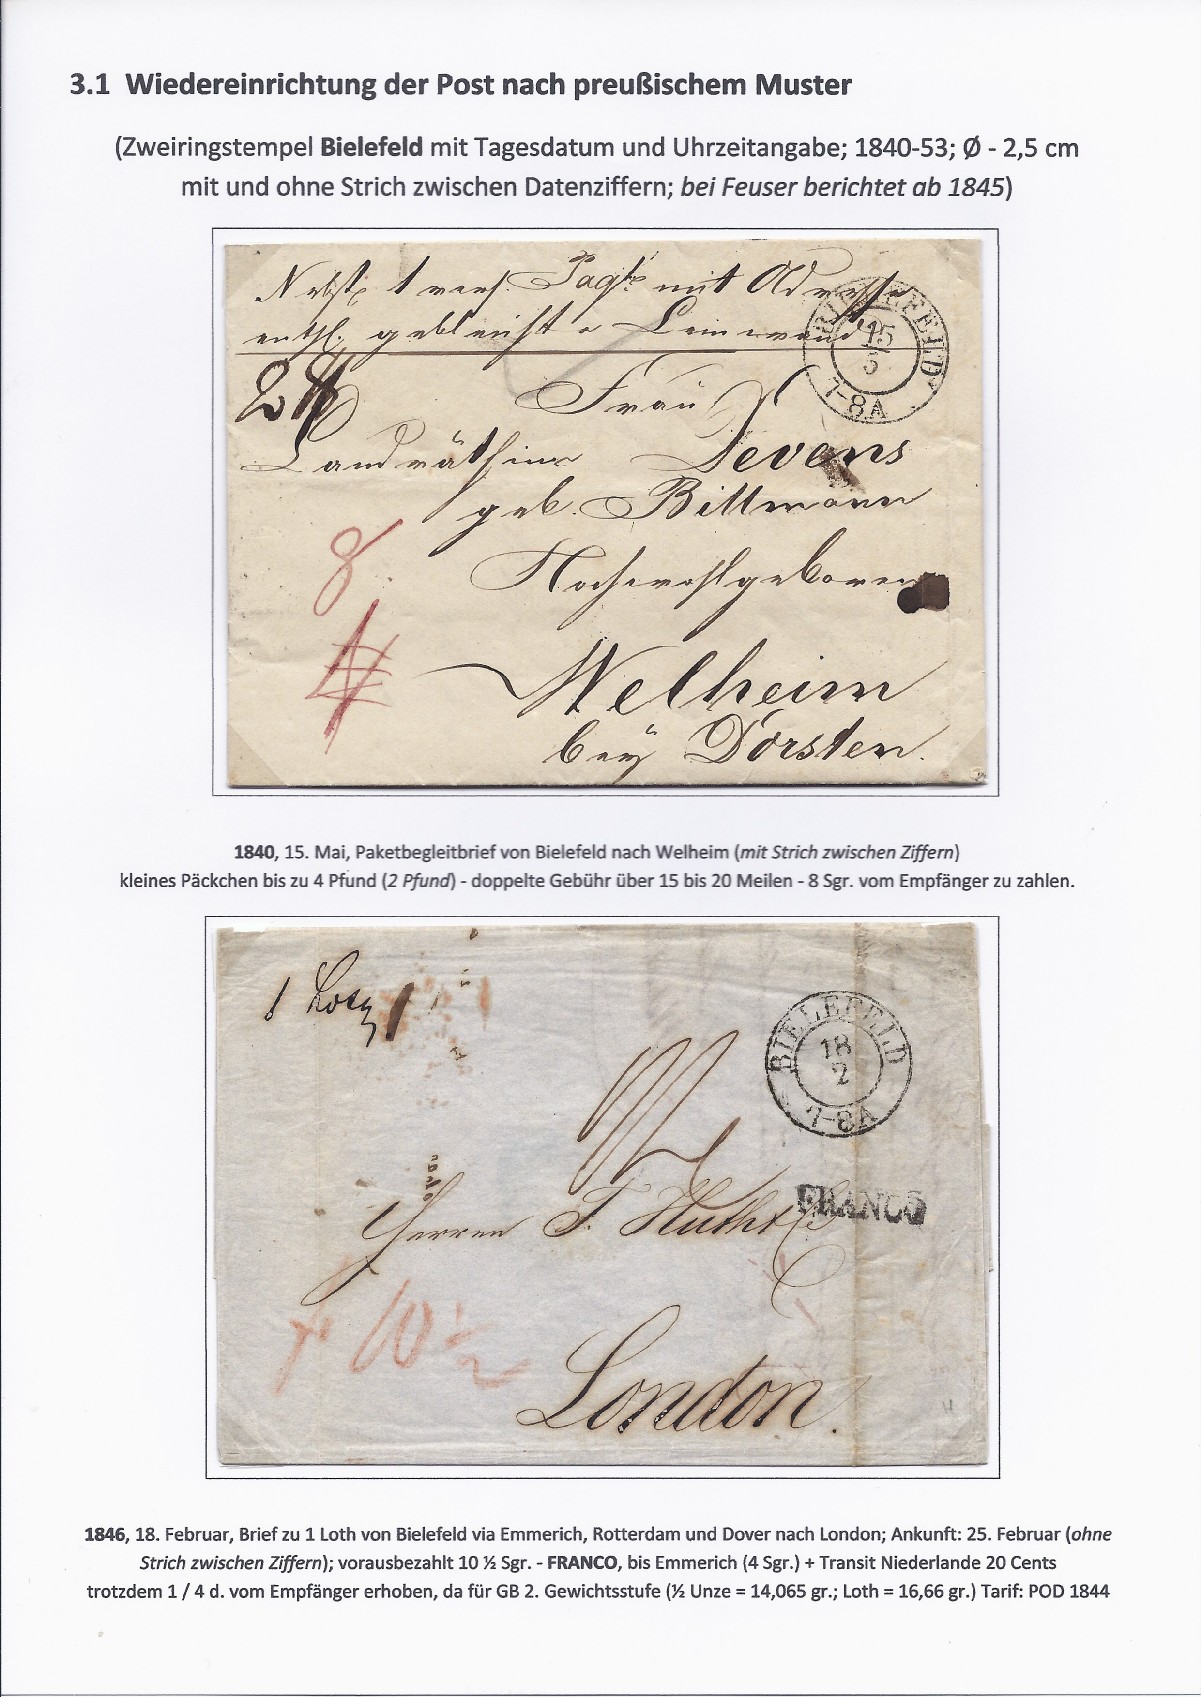 3.1 Wiedereinrichtung der Post nach preußischem Muster
(Zweiringstempel Bielefeld mit Tagesdatum und Uhrzeitangabe; 1840-53; Ø - 2,5 cm
mit und ohne Strich zwischen Datenziffern; bei Feuser berichtet ab 1845)
Nebst 1 vers. Paqt. mit Adresse
enth. gebleicht Leinwand
BIELEFELD
15
5
7-8A
2 ℔
Frau
Landräthinn Devens
geb. Bittmann
8
Hochwohlgeboren
Welheim
bey Dorsten.
1840, 15. Mai, Paketbegleitbrief von Bielefeld nach Welheim (mit Strich zwischen Ziffern)
kleines Päckchen bis zu 4 Pfund (2 Pfund) - doppelte Gebühr über 15 bis 20 Meilen - 8 Sgr. vom Empfänger zu zahlen.
1 Loth
BIELEFELD
18
2
7-8A
FRANCO
Herren F. Huth & Co
10 ½
London.
1846, 18. Februar, Brief zu 1 Loth von Bielefeld via Emmerich, Rotterdam und Dover nach London; Ankunft: 25. Februar (ohne
Strich zwischen Ziffern); vorausbezahlt 10 ½ Sgr. - FRANCO, bis Emmerich (4 Sgr.) + Transit Niederlande 20 Cents
trotzdem 1 / 4 d. vom Empfänger erhoben, da für GB 2. Gewichtsstufe (½ Unze = 14,065 gr.; Loth = 16,66 gr.) Tarif: POD 1844